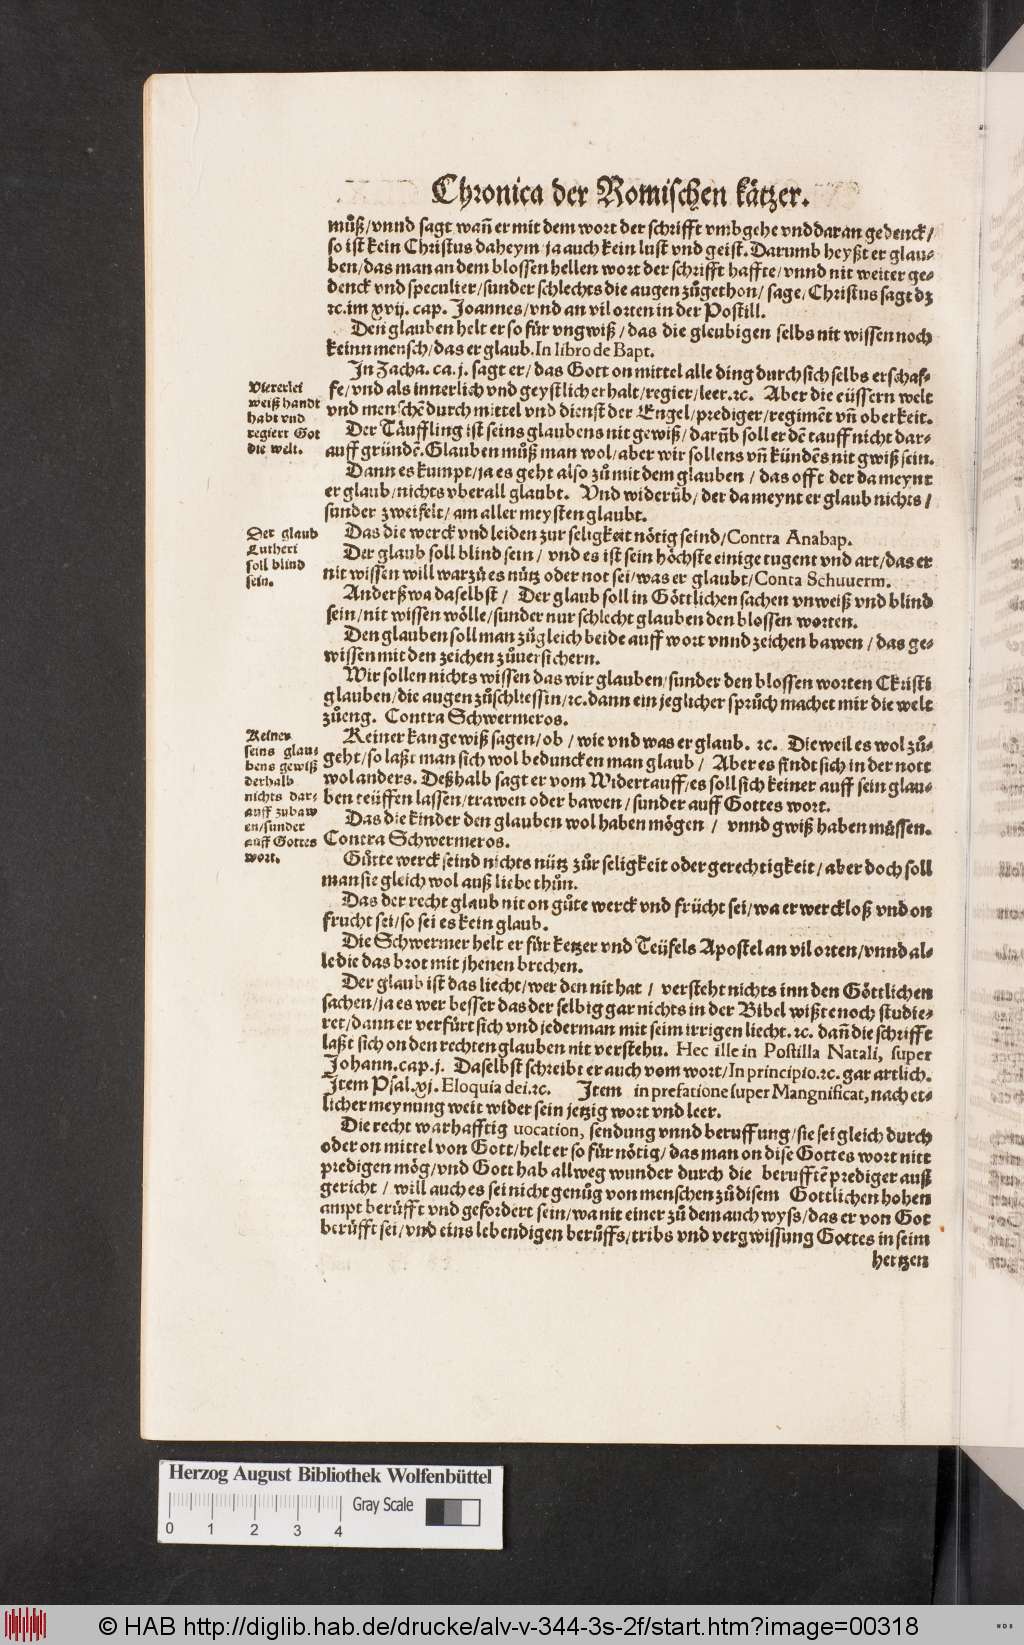 Chronica der Romischen kätzer.
můß/vnnd sagt wañ er mit dem wort der schrifft vmbgehe vnd daran gedenck/
so ist kein Christus daheym/ja auch kein lust vnd geist. Darumb heyßt er glau-
ben/das man an dem blossen hellen wort der schrifft haffte/vnnd nit weiter ge-
denck vnd speculier/sunder schlechts die augen zůgethon/sage/Christus sagt dz
ꝛc.im xvij. cap. Joannes/vnd an vil orten in der Postill.
Den glauben helt er so für vngwiß/das die gleubigen selbs nit wissen noch
keinn mensch/das er glaub. In libro de Bapt.
In Zacha. ca. j. sagt er/das Gott on mittel alle ding durch sich selbs erschaf-
fe/vnd als innerlich vnd geystlich erhalt/regier/leer.ꝛc. Aber die eüssern welt
vnd mensche͂ durch mittel vnd dienst der Engel/prediger/regime͂t vñ oberkeit.
Viererlei
weiß handt
habt vnd
regiert Got
die welt.
Der Täuffling ist seins glaubens nit gewiß/darũb soll er de͂ tauff nicht dar-
auff gründe͂. Glauben můß man wol/aber wir sollens vñ künde͂s nit gwiß sein.
Dann es kumpt/ja es geht also zů mit dem glauben/das offt der da meynt
er glaub/nichts vberall glaubt. Vnd widerũb/der da meynt er glaub nichts/
sunder zweifelt/am aller meysten glaubt.
Das die werck vnd leiden zur seligkeit nötig seind/Contra Anabap.
Der glaub
Lutheri
soll blind
sein.
Der glaub soll blind sein/vnd es ist sein höchste einige tugent vnd art/das er
nit wissen will warzů es nütz oder not sei/was er glaubt/Conta Schuuerm.
Anderßwa daselbst/Der glaub soll in Göttlichen sachen vnweiß vnd blind
sein/nit wissen wölle/sunder nur schlecht glauben den blossen worten.
Den glauben soll man zůgleich beide auff wort vnnd zeichen bawen/das ge-
wissen mit den zeichen zůuersichern.
Wir sollen nichts wissen das wir glauben/sunder den blossen worten Ckristi
glauben/die augen zůschliessin/ꝛc.dann ein jeglicher sprůch machet mir die welt
zůeng. Contra Schwermeros.
Keiner
seins glau-
bens gewiß
derhalb
nichts dar-
auff zubaw
en/sunder
auff Gottes
wort.
Keiner kan gewiß sagen/ob/wie vnd was er glaub. ꝛc. Dieweil es wol zů-
geht/so laßt man sich wol beduncken man glaub/Aber es findt sich in der nott
wol anders. Deßhalb sagt er vom Widertauff/es soll sich keiner auff sein glau-
ben teüffen lassen/trawen oder bawen/sunder auff Gottes wort.
Das die kinder den glauben wol haben mögen/vnnd gwiß haben müssen.
Contra Schwermeros.
Gůtte werck seind nichts nütz zůr seligkeit oder gerechtigkeit/aber doch soll
man sie gleich wol auß liebe thůn.
Das der recht glaub nit on gůte werck vnd frücht sei/wa er werckloß vnd on
frucht sei/so sei es kein glaub.
Die Schwermer helt er für ketzer vnd Teüfels Apostel an vil orten/vnnd al-
le die das brot mit jhenen brechen.
Der glaub ist das liecht/wer den nit hat/versteht nichts inn den Göttlichen
sachen/ja es wer besser das der selbig gar nichts in der Bibel wißte noch studie-
ret/dann er verfürt sich vnd jederman mit seim irrigen liecht.ꝛc. dañ die schrifft
laßt sich on den rechten glauben nit verstehn. Hec ille in Postilla Natali, super
Johann.cap.j. Daselbst schreibt er auch vom wort/In principio.ꝛc. gar artlich.
Jtem Psal.xj. Eloquia dei.ꝛc. Jtem in prefatione super Mangnificat, nach et-
licher meynung weit wider sein jetzig wort vnd leer.
Die recht warhafftig uocation, sendung vnnd beruffung/sie sei gleich durch
oder on mittel von Gott/helt er so für nötig/das man on dise Gottes wort nitt
predigen mög/vnd Gott hab allweg wunder durch die berufftẽ prediger auß
gericht/will auch es sei nicht genůg von menschen zů disem Gottlichen hohen
ampt berůfft vnd gefordert sein/wa nit einer zů dem auch wyss/das er von Got
berůfft sei/vnd eins lebendigen berůffs/tribs vnd vergwissung Gottes in seim
hertzen
Herzog August Bibliothek Wolfenbüttel
Gray Scale
0 1 2 3 4
© HAB http://diglib.hab.de/drucke/alv-v-344-3s-2f/start.htm?image=00318